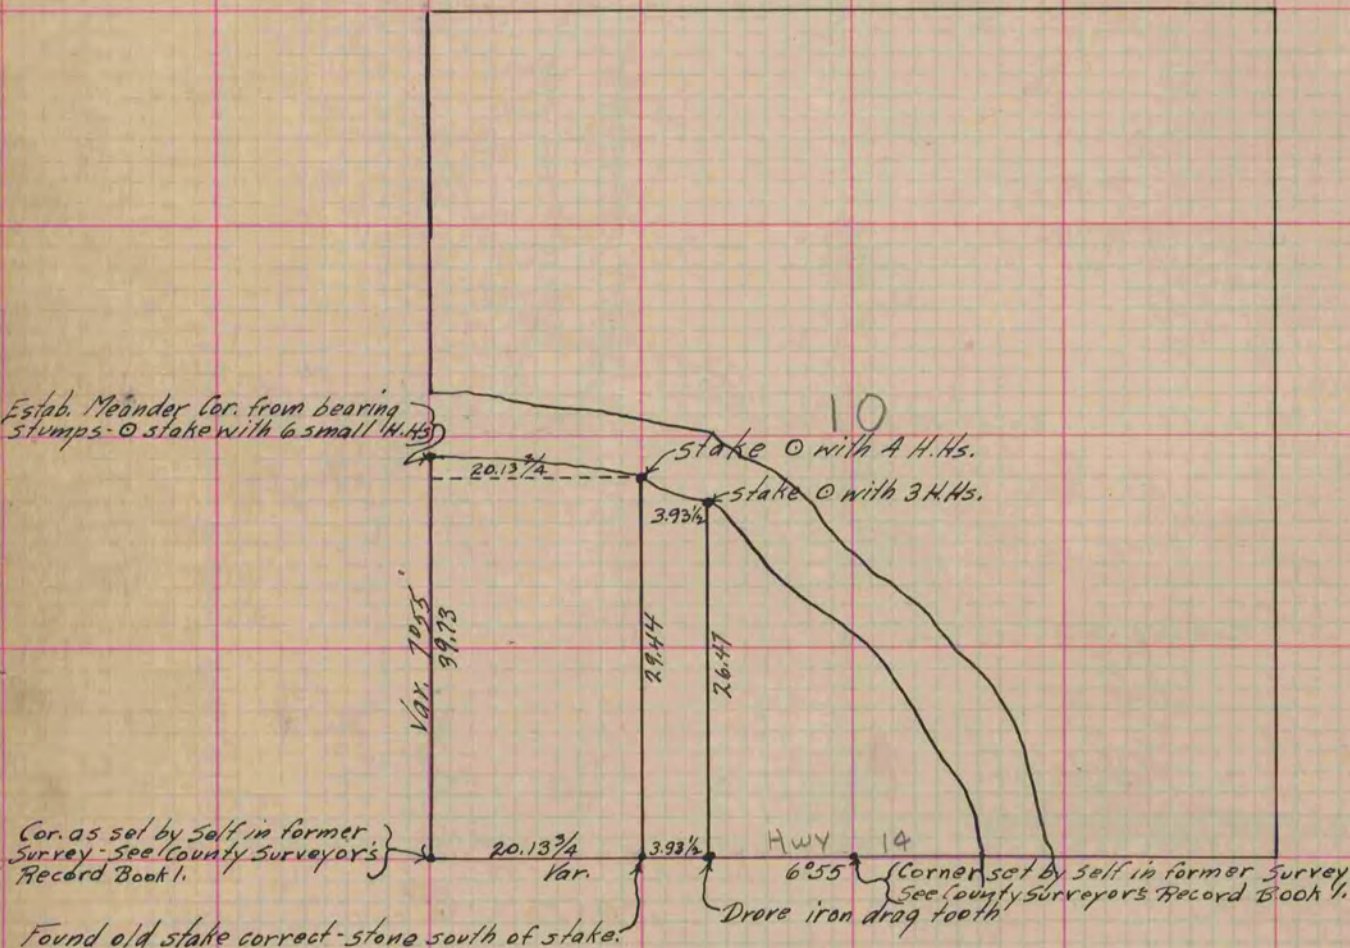 10
Estab. Meander Cor. from bearing
stumps - ⊙ stake with 6 small H.Hs
stake ⊙ with 4 H.Hs.
20.13¾
stake ⊙ with 3 H.Hs.
3.93½
Var. 7°55'
39.73
29.44
26.47
Cor. as set by Self in former
Survey - See County Surveyor's
Record Book 1.
20.13¾
Var.
3.93½
Hwy 14
6°55'
Corner set by self in former Survey
See County Surveyor's Record Book 1.
Drove iron drag tooth
Found old stake correct - stone south of stake.